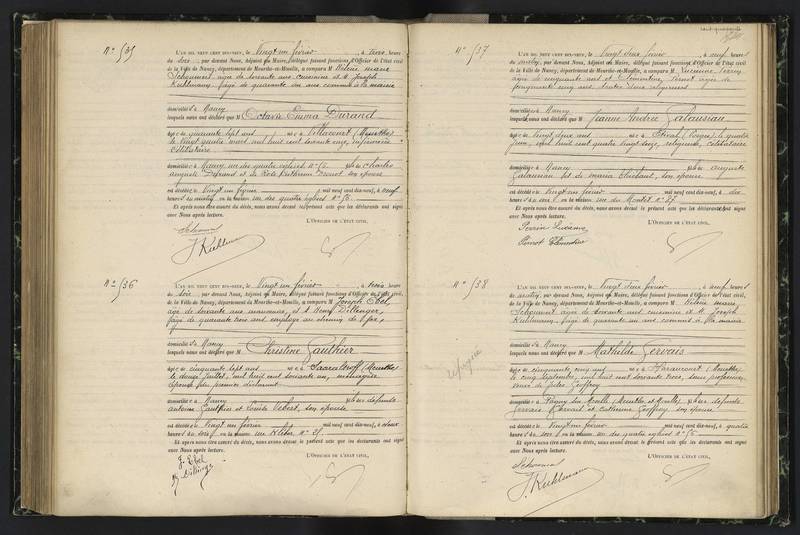 N° 535
L'AN MIL NEUF CENT DIX-NEUF, le Vingt un février, à trois heures
du soir, par devant Nous, Adjoint au Maire, délégué faisant fonctions d'Officier de l'état civil
de la Ville de Nancy, département de Meurthe-et-Moselle, a comparu M
âgée de soixante ans, cuisinière et M Joseph
Kuhlmann, âgé de quarante un ans commis à la mairie
domiciliés à Nancy
lesquels nous ont déclaré que M Octavie Emma Durand
âgée de quarante sept ans, née à
le vingt quatre mars mil huit cent soixante onze, infirmière
célibataire
domiciliée à Nancy, rue des quatre églises n°
est décédée le Vingt un février mil neuf cent dix-neuf, à neuf
heures du matin, en la maison rue des quatre églises n°
Et après nous être assuré du décès, nous avons dressé le présent acte que les déclarants ont signé
avec Nous après lecture.
L'OFFICIER DE L'ÉTAT CIVIL,
J. Kuhlmann
N° 536
L'AN MIL NEUF CENT DIX-NEUF, le Vingt un février, à trois heures
du soir, par devant Nous, Adjoint au Maire, délégué faisant fonctions d'Officier de l'état civil,
de la Ville de Nancy, département de Meurthe-et-Moselle, a comparu M Joseph Ebel
âgé de soixante ans manœuvre, et
âgé de quarante trois ans employé au chemin de fer,
domiciliés à Nancy
lesquels nous ont déclaré que M Christine Gauthier
âgée de cinquante sept ans, née à
le douze juillet, mil huit cent soixante un, ménagère
épouse du premier déclarant
domiciliée à Nancy, fille des défunts
antoine Gauthier et Louise son épouse
est décédée le Vingt un février mil neuf cent dix-neuf, à deux
heures du soir, en la maison rue Kléber n°
Et après nous être assuré du décès, nous avons dressé le présent acte que les déclarants ont signé
avec Nous après lecture.
L'OFFICIER DE L'ÉTAT CIVIL,
J. Ebel
N° 537
L'AN MIL NEUF CENT DIX-NEUF, le Vingt deux février, à neuf heures
du matin, par devant Nous, Adjoint au Maire, délégué faisant fonctions d'Officier de l'état civil
de la Ville de Nancy, département de Meurthe-et-Moselle, a comparu M Lucienne Perrin
âgée de cinquante ans et Clémentine Pernot âgée de
cinquante cinq ans toutes deux religieuses
domiciliées à Nancy
lesquels nous ont déclaré que M Jeanne Andrée Galaussiau
âgée de vingt deux ans, née à Etival (Vosges) le quatre
juin, mil huit cent quatre vingt seize, religieuse, célibataire
domiciliée à Nancy, fille de auguste
Galaussiau et de maria Thiébaut, son épouse
est décédée le Vingt un février mil neuf cent dix-neuf, à dix
heures du soir, en la maison rue du Montet n° 27
Et après nous être assuré du décès, nous avons dressé le présent acte que les déclarants ont signé
avec Nous après lecture.
L'OFFICIER DE L'ÉTAT CIVIL,
Perrin Lucienne
Pernot Clémentine
N° 538
L'AN MIL NEUF CENT DIX-NEUF, le Vingt deux février, à neuf heures
du matin, par devant Nous, Adjoint au Maire, délégué faisant fonctions d'Officier de l'état civil,
de la Ville de Nancy, département de Meurthe-et-Moselle, a comparu M
âgée de soixante ans, cuisinière et M Joseph
Kuhlmann, âgé de quarante un ans commis à la mairie
domiciliés à Nancy
lesquels nous ont déclaré que M Mathilde Gervais
âgée de cinquante cinq ans, née à Haraucourt (Meurthe)
le cinq septembre, mil huit cent soixante trois, sans profession,
veuve de Jules Geoffroy
domiciliée à Pagny sur Moselle (Meurthe et Moselle), fille des défunts
Gervais et Catherine Geoffroy son épouse
est décédée le Vingt un février mil neuf cent dix-neuf, à quatre
heures du soir, en la maison rue des quatre églises n°
Et après nous être assuré du décès, nous avons dressé le présent acte que les déclarants ont signé
avec Nous après lecture.
L'OFFICIER DE L'ÉTAT CIVIL,
J. Kuhlmann